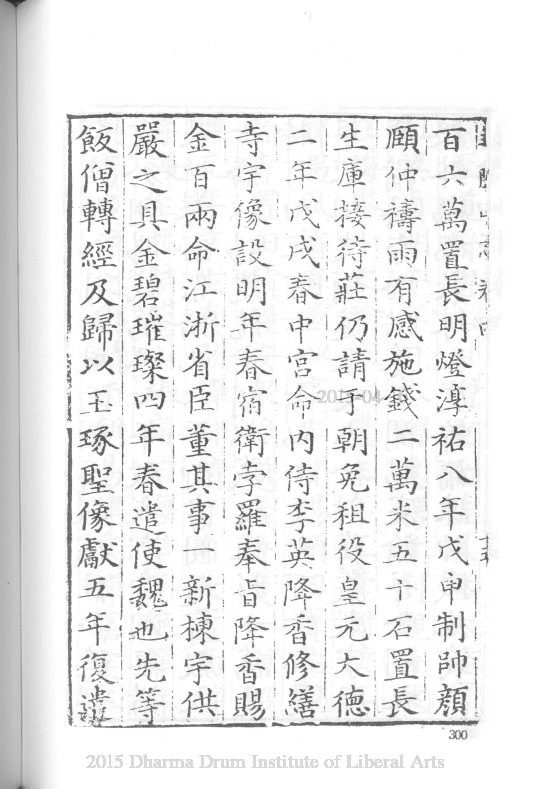 百六萬置長明燈淳祐八年戊申制帥顏
頤仲禱雨有感施錢二萬米五十石置長
生庫接待莊仍請于朝免租役皇元大德
二年戊戌春中宮命內侍李英降香修繕
寺宇像設明年春宿衛孛羅奉旨降香賜
金百兩命江浙省臣董其事一新棟宇供
嚴之具金碧璀璨四年春遣使魏也先等
飯僧轉經及歸以玉琢聖像獻五年復遣
300
2015 Dharma Drum Institute of Liberal Arts